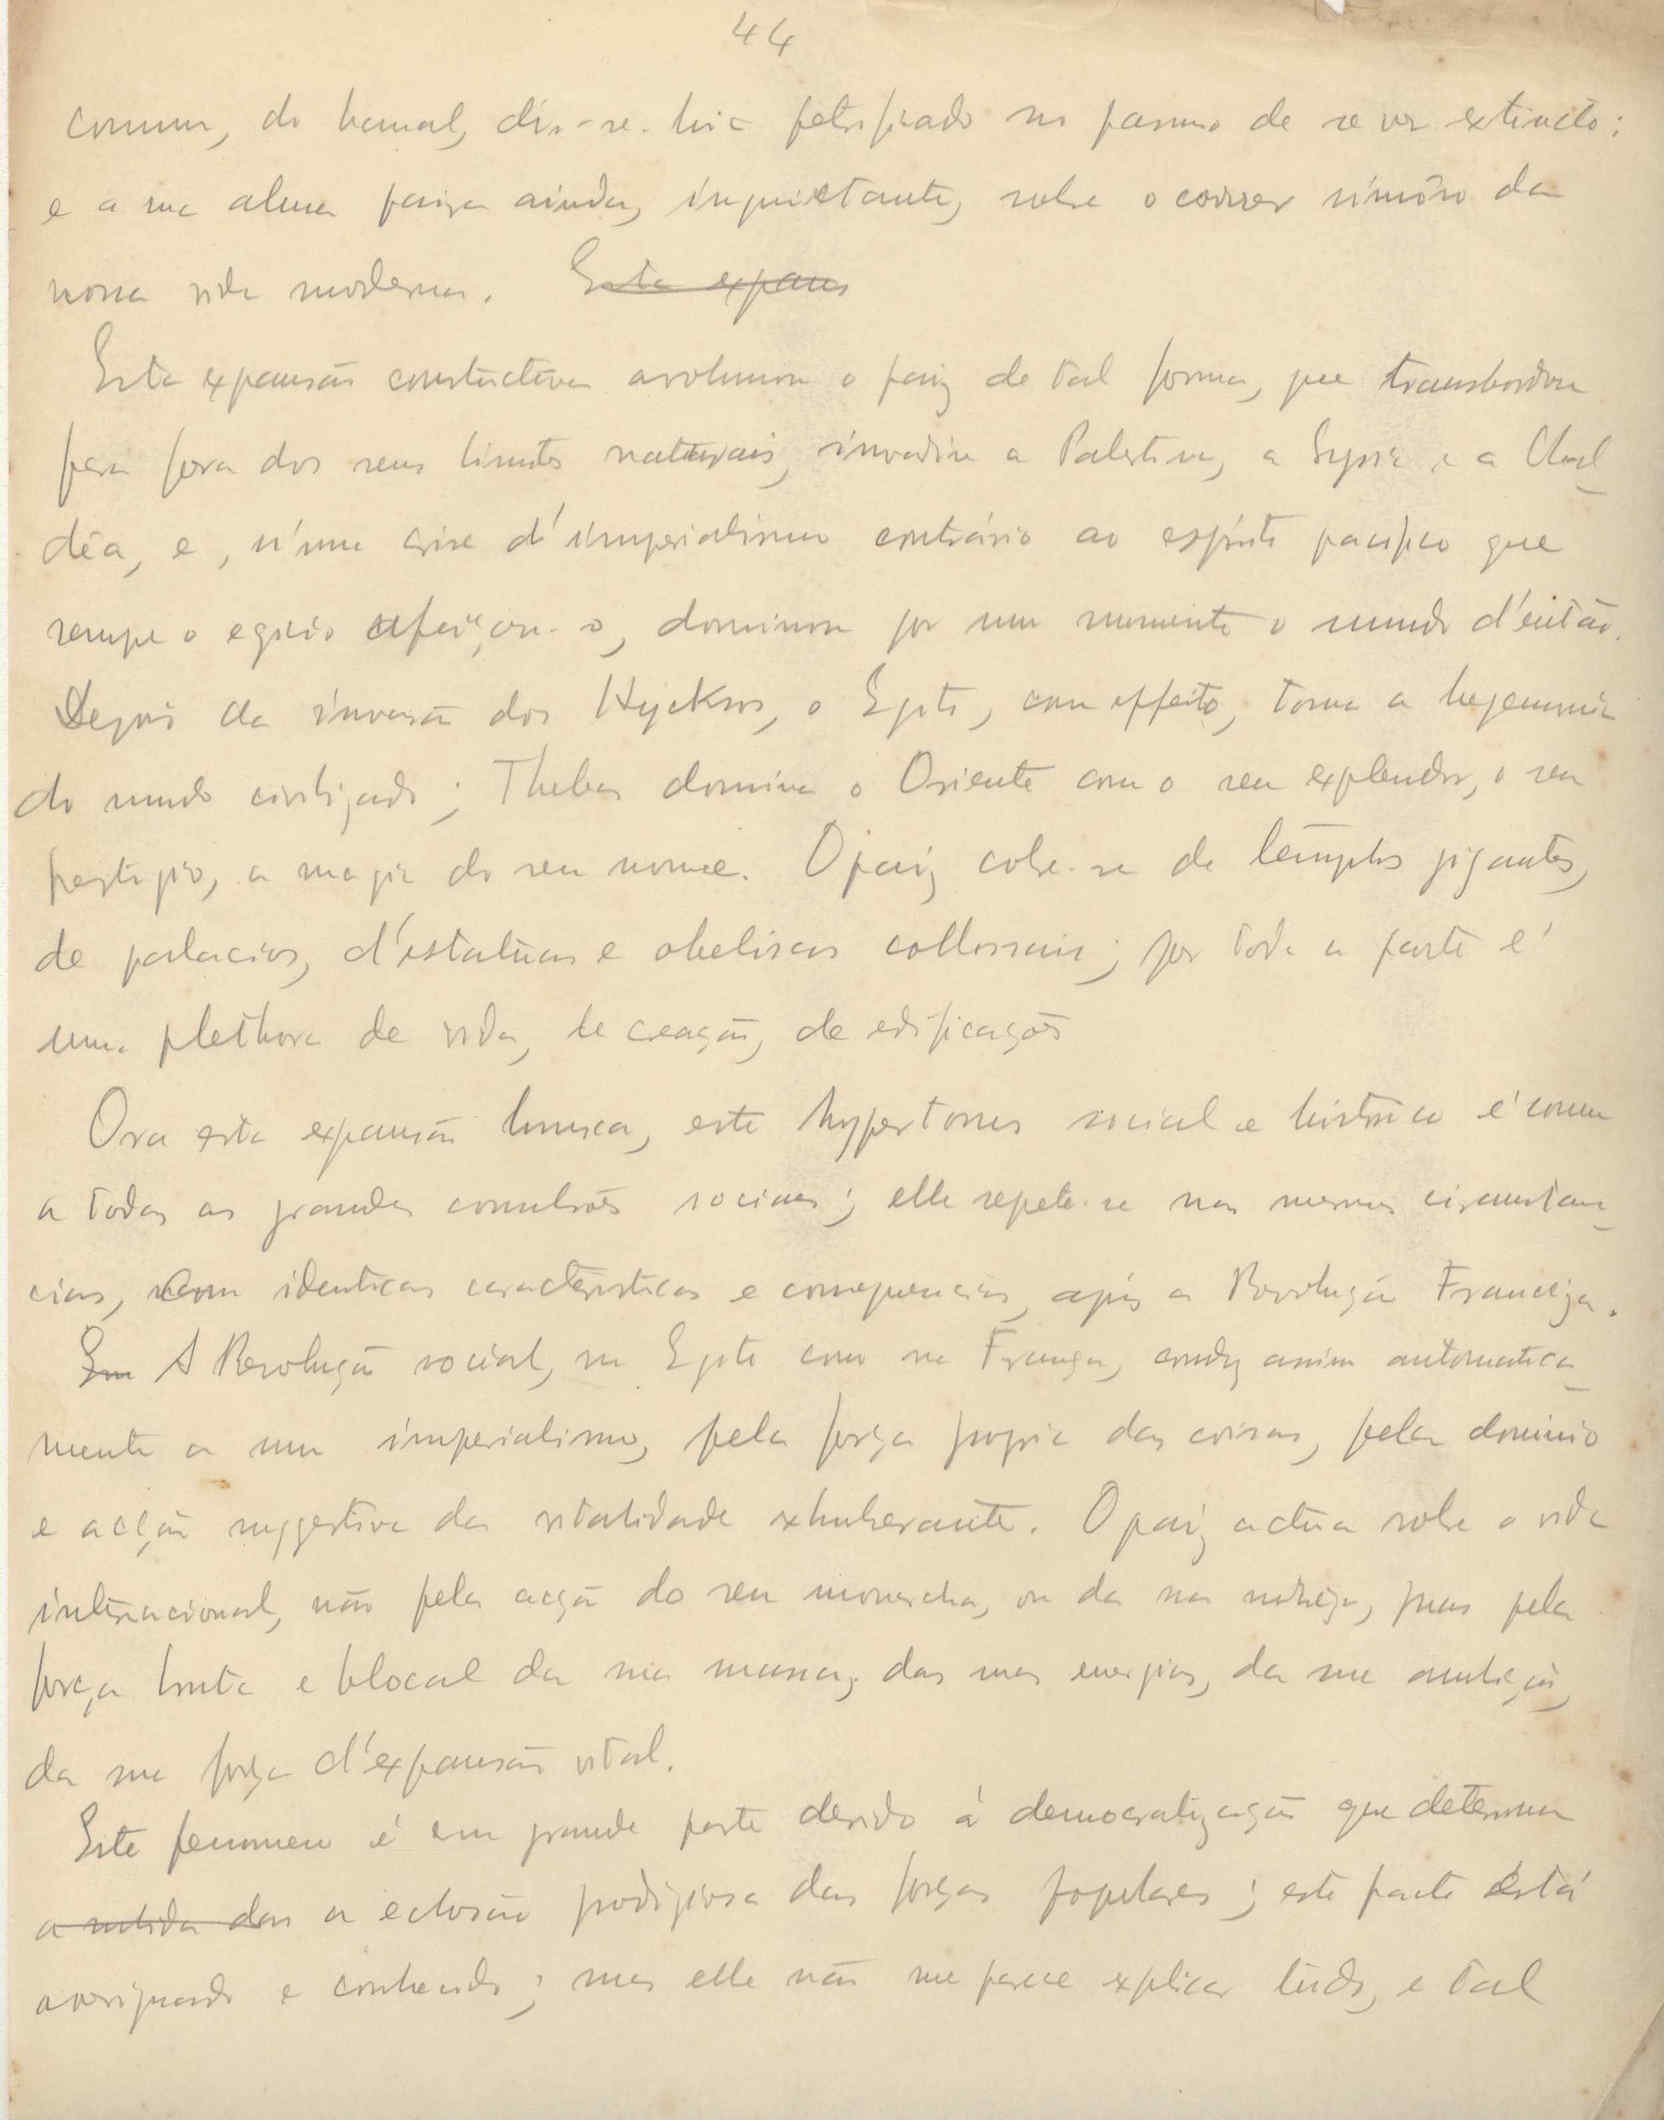 44
commum, do banal, dir-se-hia petrificado no pasmo de se ver extincto;
e a sua alma paira ainda, inquietante, sobre o correr sinuoso da
nossa vida moderna. Esta expans
Esta expansão constructiva avolumou o paiz de tal forma, que transbordou
para fora dos seus limites naturais, invadiu a Palestina, a Syria e a Chal_
déa, e, n'uma crise d'imperialismo contrário ao espirito pacifico que
sempre o egicio afeiçou-o, dominou por um momento o mundo d'então.
Depois da invasão dos Hycksos, o Egito, com effeito, toma a hegemonia
do mundo civilizado; Thebas domina o Oriente com o seu explendor, o seu
prestigio, a magia do seu nome. O paiz cobre-se de templos gigantes,
de palacios, d'estatuas e obeliscos collossais; por toda a parte é
uma plethora de vida, de creação, de edificações
Ora esta expansão brusca, este hypertonus social e historico é comum
a todas as grandes convulsões sociaes; elle repete-se nas mesmas circumstan_
cias, com identicas caracteristicas e consequencias, após a Revolução Franceza.
Em A Revolução social, no Egito como na França, conduz assim automatica_
mente a um imperialismo, pela força propria das coisas, pelo dominio
e acção suggestiva da vitalidade exhuberante. O paiz actua sobre a vida
internacional, não pela acção do seu monarcha, ou da sua nobreza, mas pela
força bruta e blocal da sua massa, das suas energias, da sua ambição,
da sua força d'expansão vital.
Este fenomeno é em grande parte devido á democratização que determina
a subida das a eclosão prodigiosa das forças populares; este facto está
averiguado e conhecido; mas elle não me parece explicar tudo, e tal